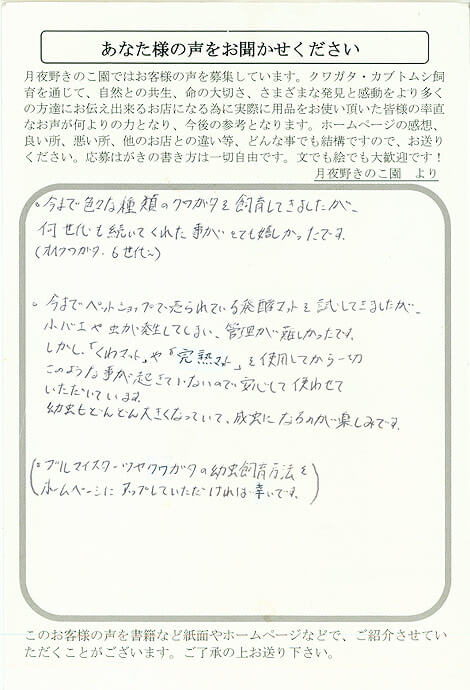 あなた様の声をお聞かせください
月夜野きのこ園ではお客様の声を募集しています。クワガタ・カブトムシ飼
育を通じて、自然との共生、命の大切さ、さまざまな発見と感動をより多く
の方達にお伝え出来るお店になる為に実際に用品をお使い頂いた皆様の率直
なお声が何よりの力となり、今後の参考となります。ホームページの感想、
良い所、悪い所、他のお店との違い等、どんな事でも結構ですので、お送り
ください。応募はがきの書き方は一切自由です。文でも絵でも大歓迎です！
月夜野きのこ園　より
。今まで色々な種類のクワガタを飼育してきましたが、
何世代も続いてくれた事がとても嬉しかったです。
(オオクワガタ、6世代〜)
。今までペットショップで売られている発酵マットを試してきましたが、
小バエや虫が発生してしまい、管理が難しかったです。
しかし、「くわマット」や「完熟マット」を使用してから一切
このような事が起きていないので安心して使わせて
いただいています。
幼虫もどんどん大きくなっていて、成虫になるのが楽しみです。
(。ブルマイスターツヤクワガタの幼虫飼育方法を
ホームページにアップしていただければ幸いです。)
このお客様の声を書籍など紙面やホームページなどで、ご紹介させてい
ただくことがございます。ご了承の上お送り下さい。